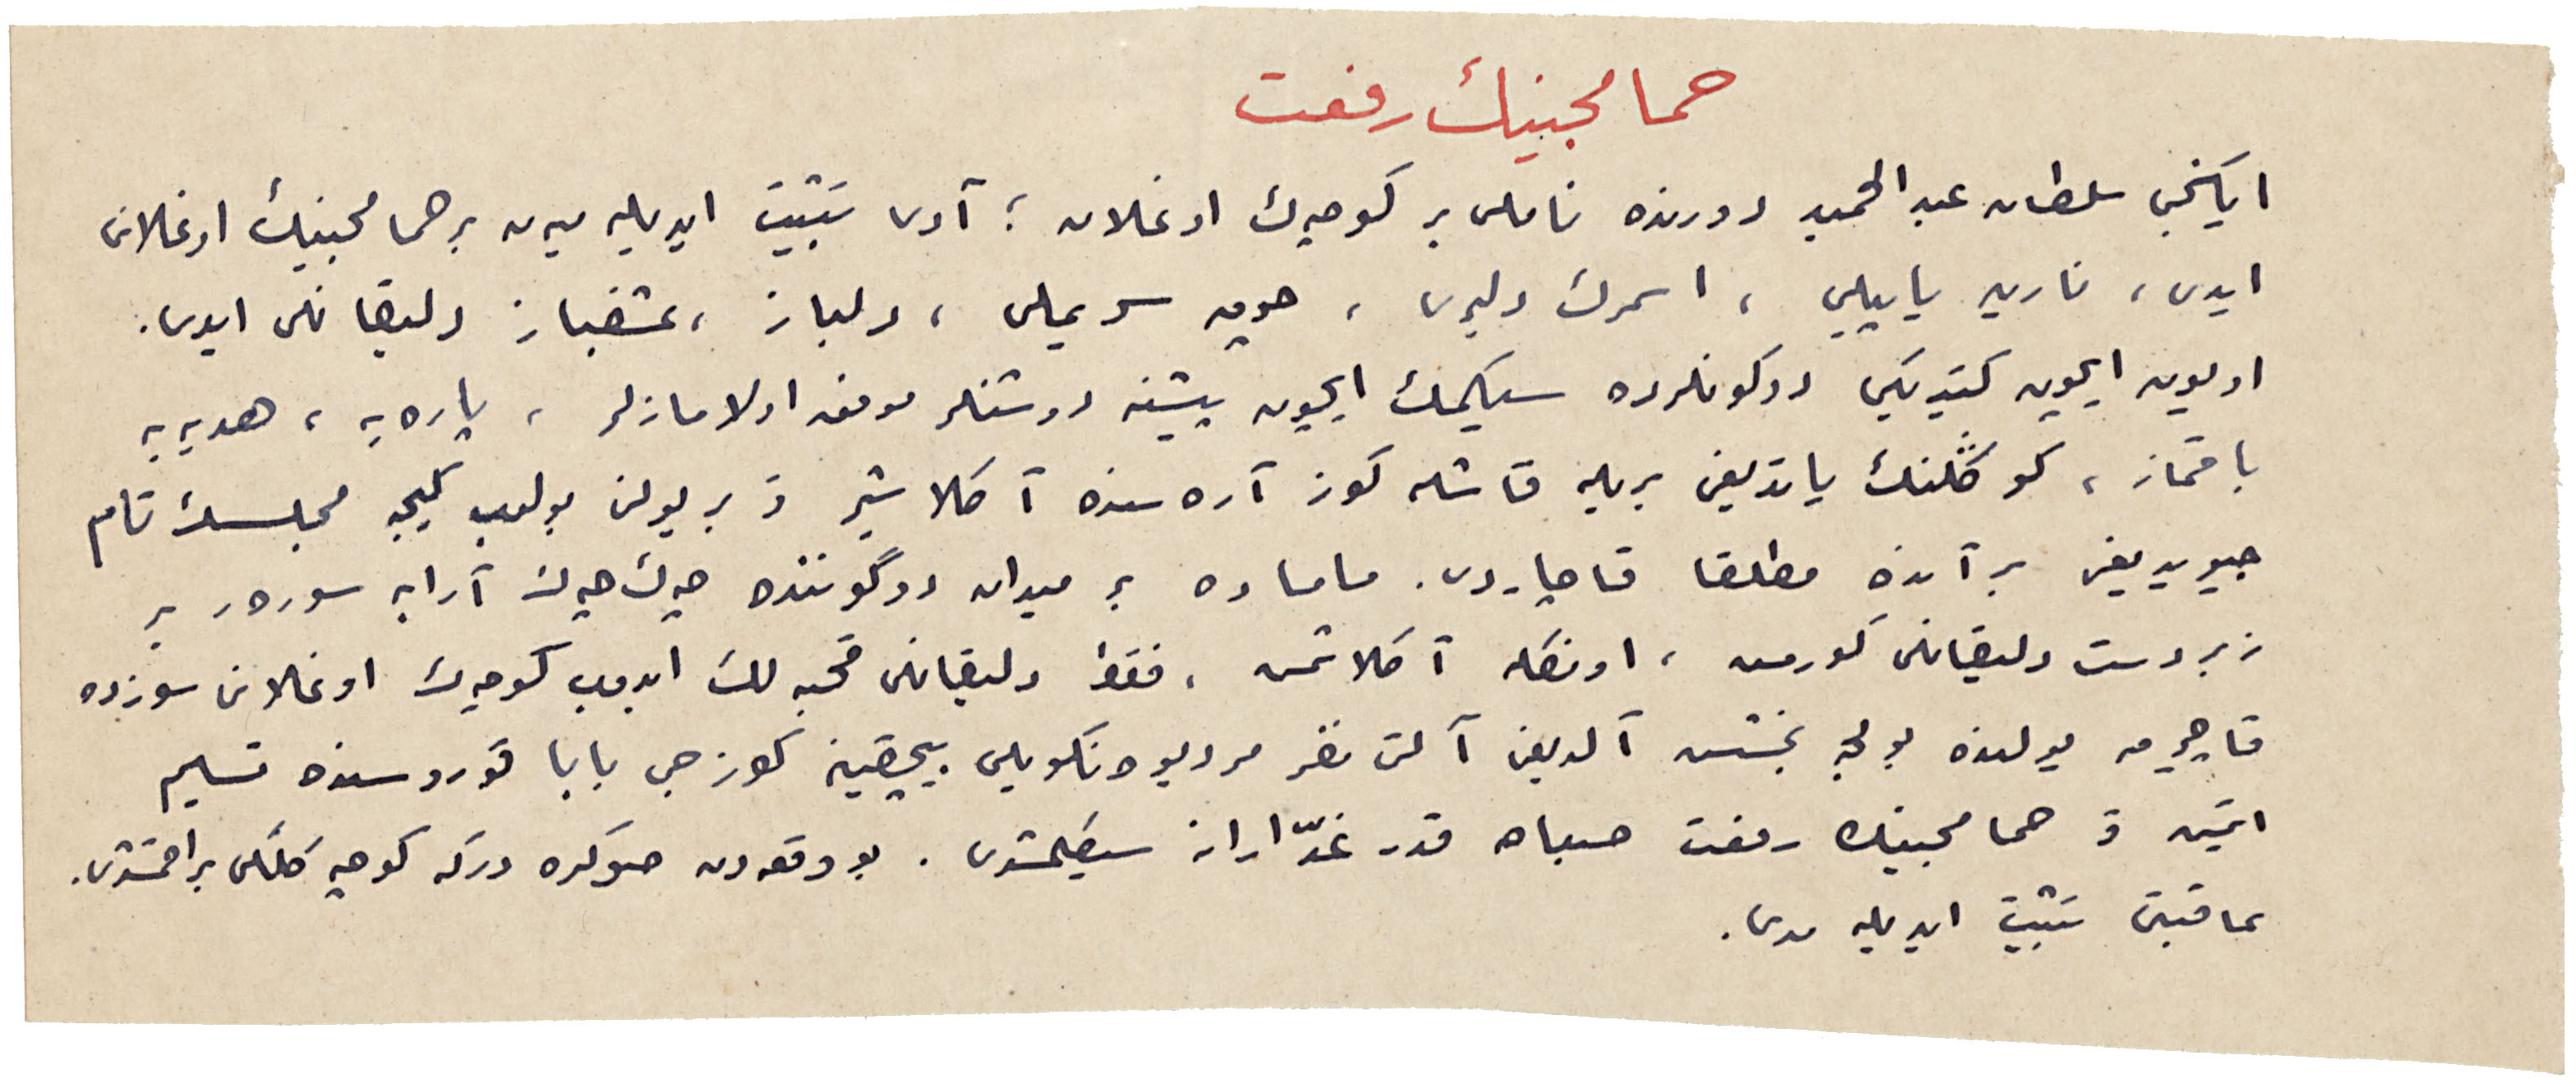 حمامجینك رفعت
ایكنجی سلطان عبدالحمید دورنده ناملی بر كوچك اوغلان ؛ آدی تثبیت ایدیله‌مین بر حمامجینك اوغلانی
ایدی ، نارین یاپیلی ، اسمرك دلبری ، چوق سویملی ، دلباز ، عشقباز دلیقانلی ایدی .
اویون ایچون كیتدیكی دوكونلرده سیكیلمك ایچون پیشنه دوشنلر موفق اولامازلر ، پاره‌یه ، هدیه‌یه
باقماز ، كوكلنك یاتدیغی بریله قاشله كوز آره سنده آكلاشیر و بر یولن بولوب كیجه مجلسك تام
جیویدیغی بر آنده مطلقا قاچاردی . بر میدان دوگوننده چیك چیك آرابه سورر بر
زبردست دلیقانلی كورمش ، اونكله آكلاشمش ، فقط دلیقانلی قحبه‌لك ایدوب كوچك اوغلانی سوزده
قاچیرمه یولنده بولجه بخشش آلدیغی آلتی نفر بیچقین كوزجی بابا قوروسنده تسلیم
ایتمش و حمامجینك رفعت صباحه قدر غدّارانه سیكیلمشدی . بو وقعه‌دن صوكره دركه كوچكلكی براقمشدی .
عاقبتی تثبیت ایدیله‌مدی .